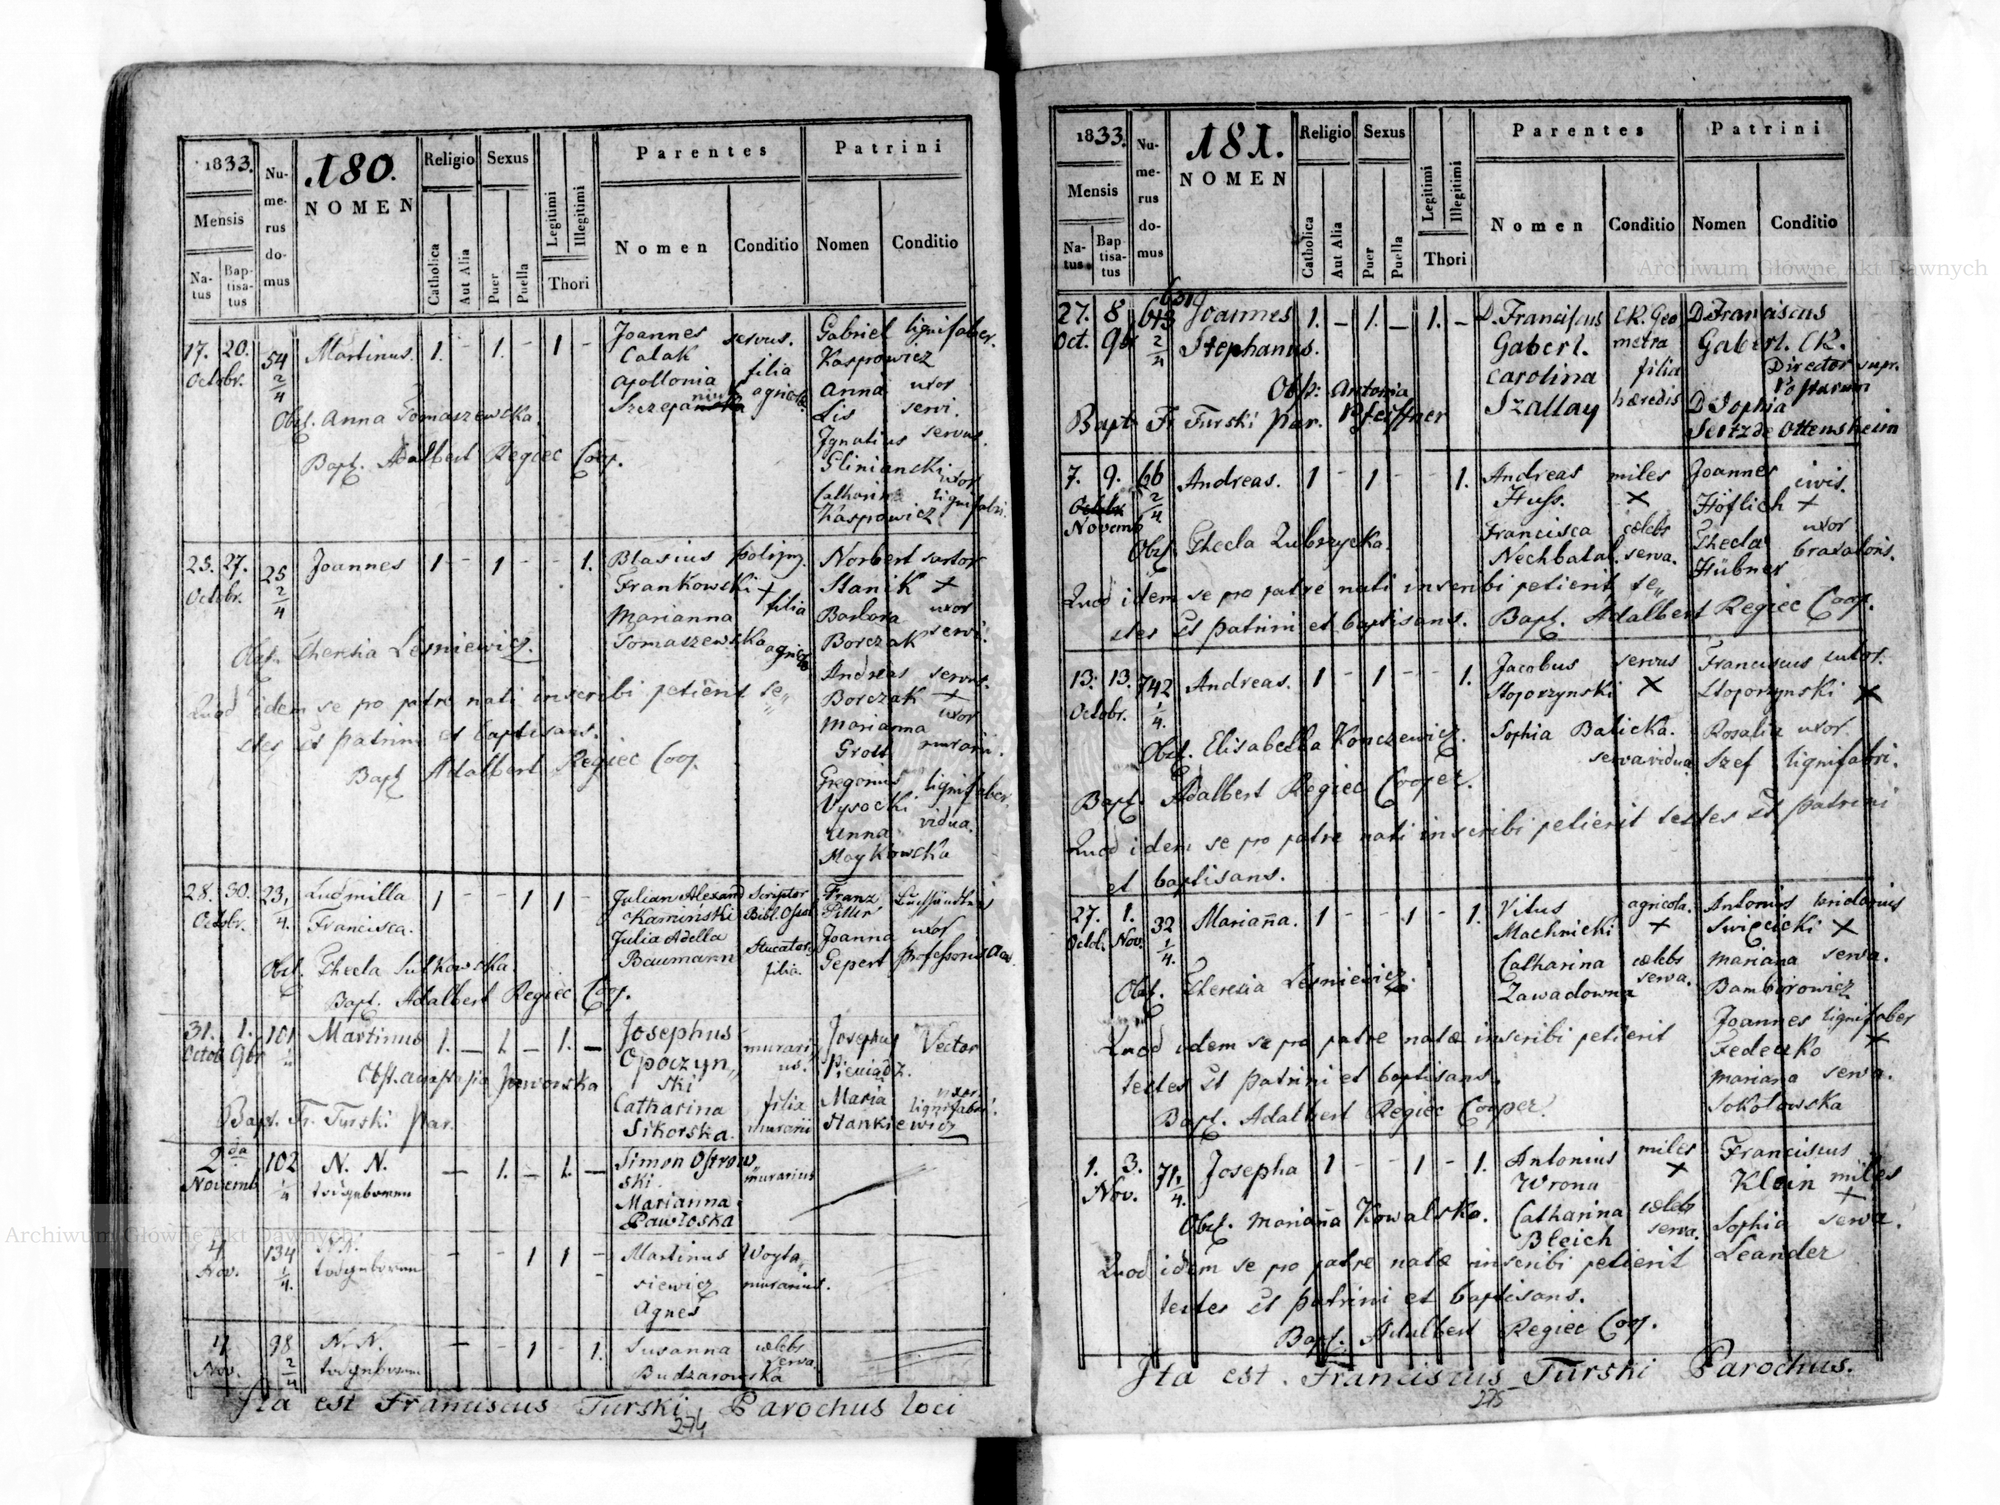 1833.
Numerus domus
180.
NOMEN
Religio
Sexus
Legitimi
Illegitimi
Thori
Parentes
Patrini
Mensis
Natus
Baptisatus
Catholica
Aut Alia
Puer
Puella
Nomen
Conditio
Nomen
Conditio
17. 20. 54 Martinus. 1. - 1. - 1 - Joannes servus. Gabriel lignifaber.
Octobr. 2/4 Calak Kasprowicz
Apollonia filia Anna uxor
agricolae Lis servi.
Obst. Anna Tomaszewska. Ignatius servus.
Bapt. Adalbert Regiec Coop. Glinianski
Catharina uxor
Kasprowicz lignifabri.
25. 27. 25 Joannes 1 - 1 - - 1. Blasius Norbert sartor
Octobr. 2/4 Frankowski + Stanik +
Marianna filia Barbara uxor
Tomaszewska agricolae Borczak servi.
Obst. Theresia Lesniewicz. Andreas servus.
Quod idem se pro patre nati inscribi petierit te„ Borczak +
stes st patrini et baptisans. Marianna uxor
Bapt. Adalbert Regiec Coop. Grott murarii.
Gregorius lignifaber.
Wysocki
Anna vidua.
Maykowska
28. 30. 23. Ludmilla 1 - - 1 1 - Julian Alexand Scriptor Franz
Octobr. 1/4. Francisca. Kamiński Bibl. Ossol. Piller
Julia Adella Stucator. Joanna uxor
Baumann filia. Gepert Professoris
Obst. Thecla Sulkowska
Bapt. Adalbert Regiec Coop.
31. 1. 101 Martinus 1. - 1. - 1. - Josephus murari„ Josephus Vector
Octob 9br Opoczyn„ us. Pieniądz.
Obst. Anastasia Jaworska ski Maria uxor
Catharina filia Stankiewicz lignifabri.
Bapt. Fr. Turski Par. Sikorska. murarii
2da 102 N. N. - 1. - 1. - Simon Ostrow„
Novemb 1/4 todgeboren ski. murarius
Marianna
Pawloska
4 134 N. N. - - 1 1 - Martinus Woyta„
Nov. 1/4. todgeboren siewicz murarius.
Agnes
4 98 N. N. - - 1 - 1. Susanna caelebs
Nov. 2/4 todgeboren Budzarowska serva.
Ita est Franciscus Turski Parochus loci
274
1833.
Numerus domus
181.
NOMEN
Religio
Sexus
Legitimi
Illegitimi
Thori
Parentes
Patrini
Mensis
Natus
Baptisatus
Catholica
Aut Alia
Puer
Puella
Nomen
Conditio
Nomen
Conditio
27. 8 Joannes 1. - 1. - 1. - D. Franciscus CK. Geo D. Franciscus
Oct. 9br 2/4 Stephanus. Gaberl. metra Gaberl. CK.
Carolina filia Director supr.
Obst: Antonia Szallay haeredis D Sophia
Bapt. Fr Turski Par. Pfeiffner Seitz de Ottensheim
7. 9. 66 Andreas. 1 - 1 - - 1. Andreas miles Joannes civis.
Octobr 2/4. Huss. X Höflich +
Novemb Francisca caelebs Thecla uxor
Obst. Thecla Zubrzycka. Nechbalal. serva. Hübner braxatoris.
Quod idem se pro patre nati inscribi petierit te„
stes st patrini et baptisans. Bapt. Adalbert Regiec Coop.
13. 13. 742 Andreas. 1 - 1 - - 1. Jacobus servus Franciscus sutor.
Octobr. 1/4. Stoporzynski X Stoporzynski X
Obst. Elisabetha Konczewicz. Sophia Balicka. Rosalia uxor.
serva vidua Szef lignifabri.
Bapt. Adalbert Regiec Cooper.
Quod idem se pro patre nati inscribi petierit testes st patrini
et baptisans.
27. 1. 32 Mariana. 1 - - 1 - 1. Vitus agricola. Antonius
Octob. Nov. 1/4. Machnicki + Swięcicki X
Catharina caelebs Mariana serva.
Obst. Theresia Lesniewicz. Zawadowna serva. Bamborowicz
Joannes lignifaber
Quod idem se pro patre natae inscribi petierit Fedeczko X
testes st patrini et baptisans. Mariana serva.
Bapt. Adalbert Regiec Cooper. Sokolowska
1. 3. 71, Josepha 1 - - 1 - 1. Antonius miles Franciscus
Nov. 1/4. Wrona X Klein miles
Obst. Mariana Kowalska. Catharina caelebs +
Bleich serva. Sophia serva.
Quod idem se pro patre natae inscribi petierit Leander
testes st patrini et baptisans.
Bapt. Adalbert Regiec Coop.
Ita est Franciscus Turski Parochus.
275
Archiwum Główne Akt Dawnych
Archiwum Główne Akt Dawnych